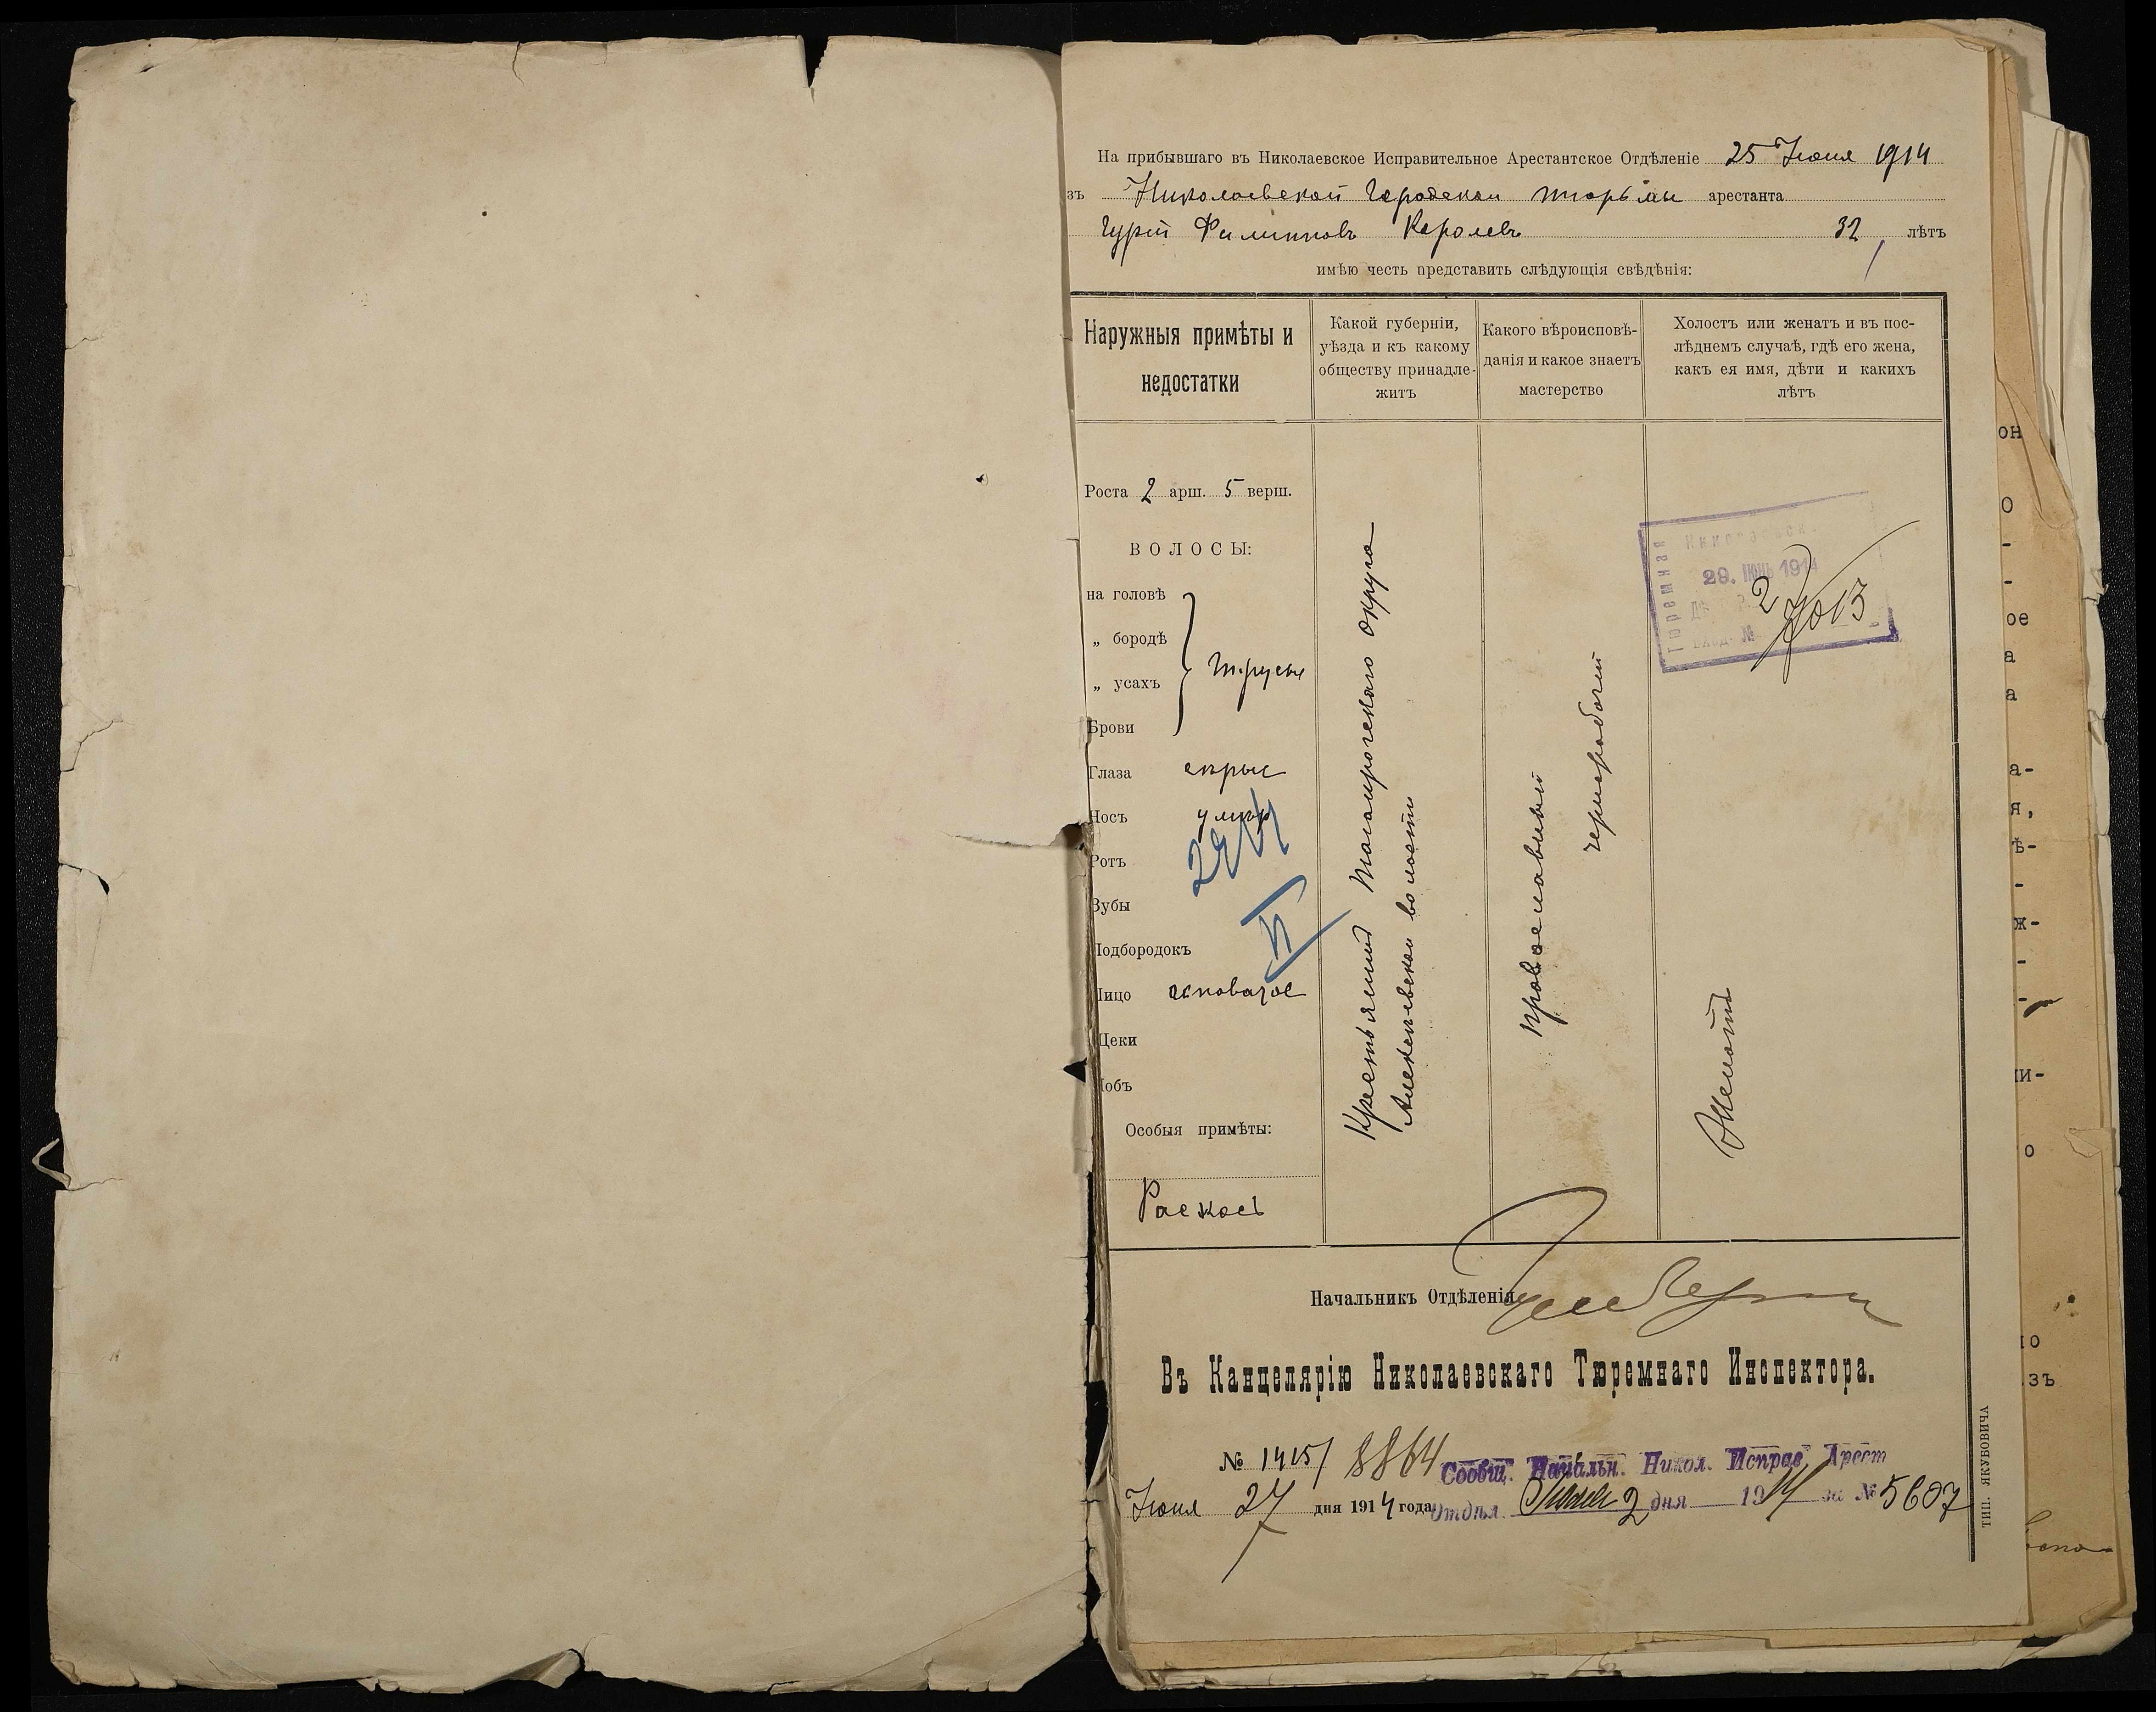 На прибывшаго въ Николаевское Исправительное Арестантское Отдѣленіе 25 Іюня 1914
зъ Николаевской Городской тюрьмы арестанта
Гурій Филипповъ Королевъ 32 лѣтъ
имѣю честь представить слѣдующія свѣдѣнія:
Наружныя примѣты и
недостатки
Какой губерніи,
уѣзда и къ какому
обществу принадле-
житъ
Какого вѣроисповѣ-
данія и какое знаетъ
мастерство
Холостъ или женатъ и въ пос-
лѣднемъ случаѣ, гдѣ его жена,
какъ ея имя, дѣти и какихъ
лѣтъ
Роста 2 арш. 5 верш.
ВОЛОСЫ:
на головѣ
„ бородѣ
„ усахъ
Брови
Глаза сѣрые
Носъ умѣр
Ротъ
Зубы
Подбородокъ
Лицо осповатое
Щеки
Лобъ
Особыя примѣты:
Раскосъ
Крестьянинъ Таганрогскаго округа
Алексѣевской волости
православный
чернорабочій
Женатъ
Тюремная
29. ІЮНЬ 1914
Вход. №
Начальникъ Отдѣленія
Въ Канцелярію Николаевскаго Тюремнаго Инспектора.
№ 1415 8864
Іюня 27 дня 1914 года
Сообщ. Начальн. Никол. Исправ. Арест
Отдѣл. 2 дня 1914 за № 5607
ТИП. ЯКУБОВИЧА